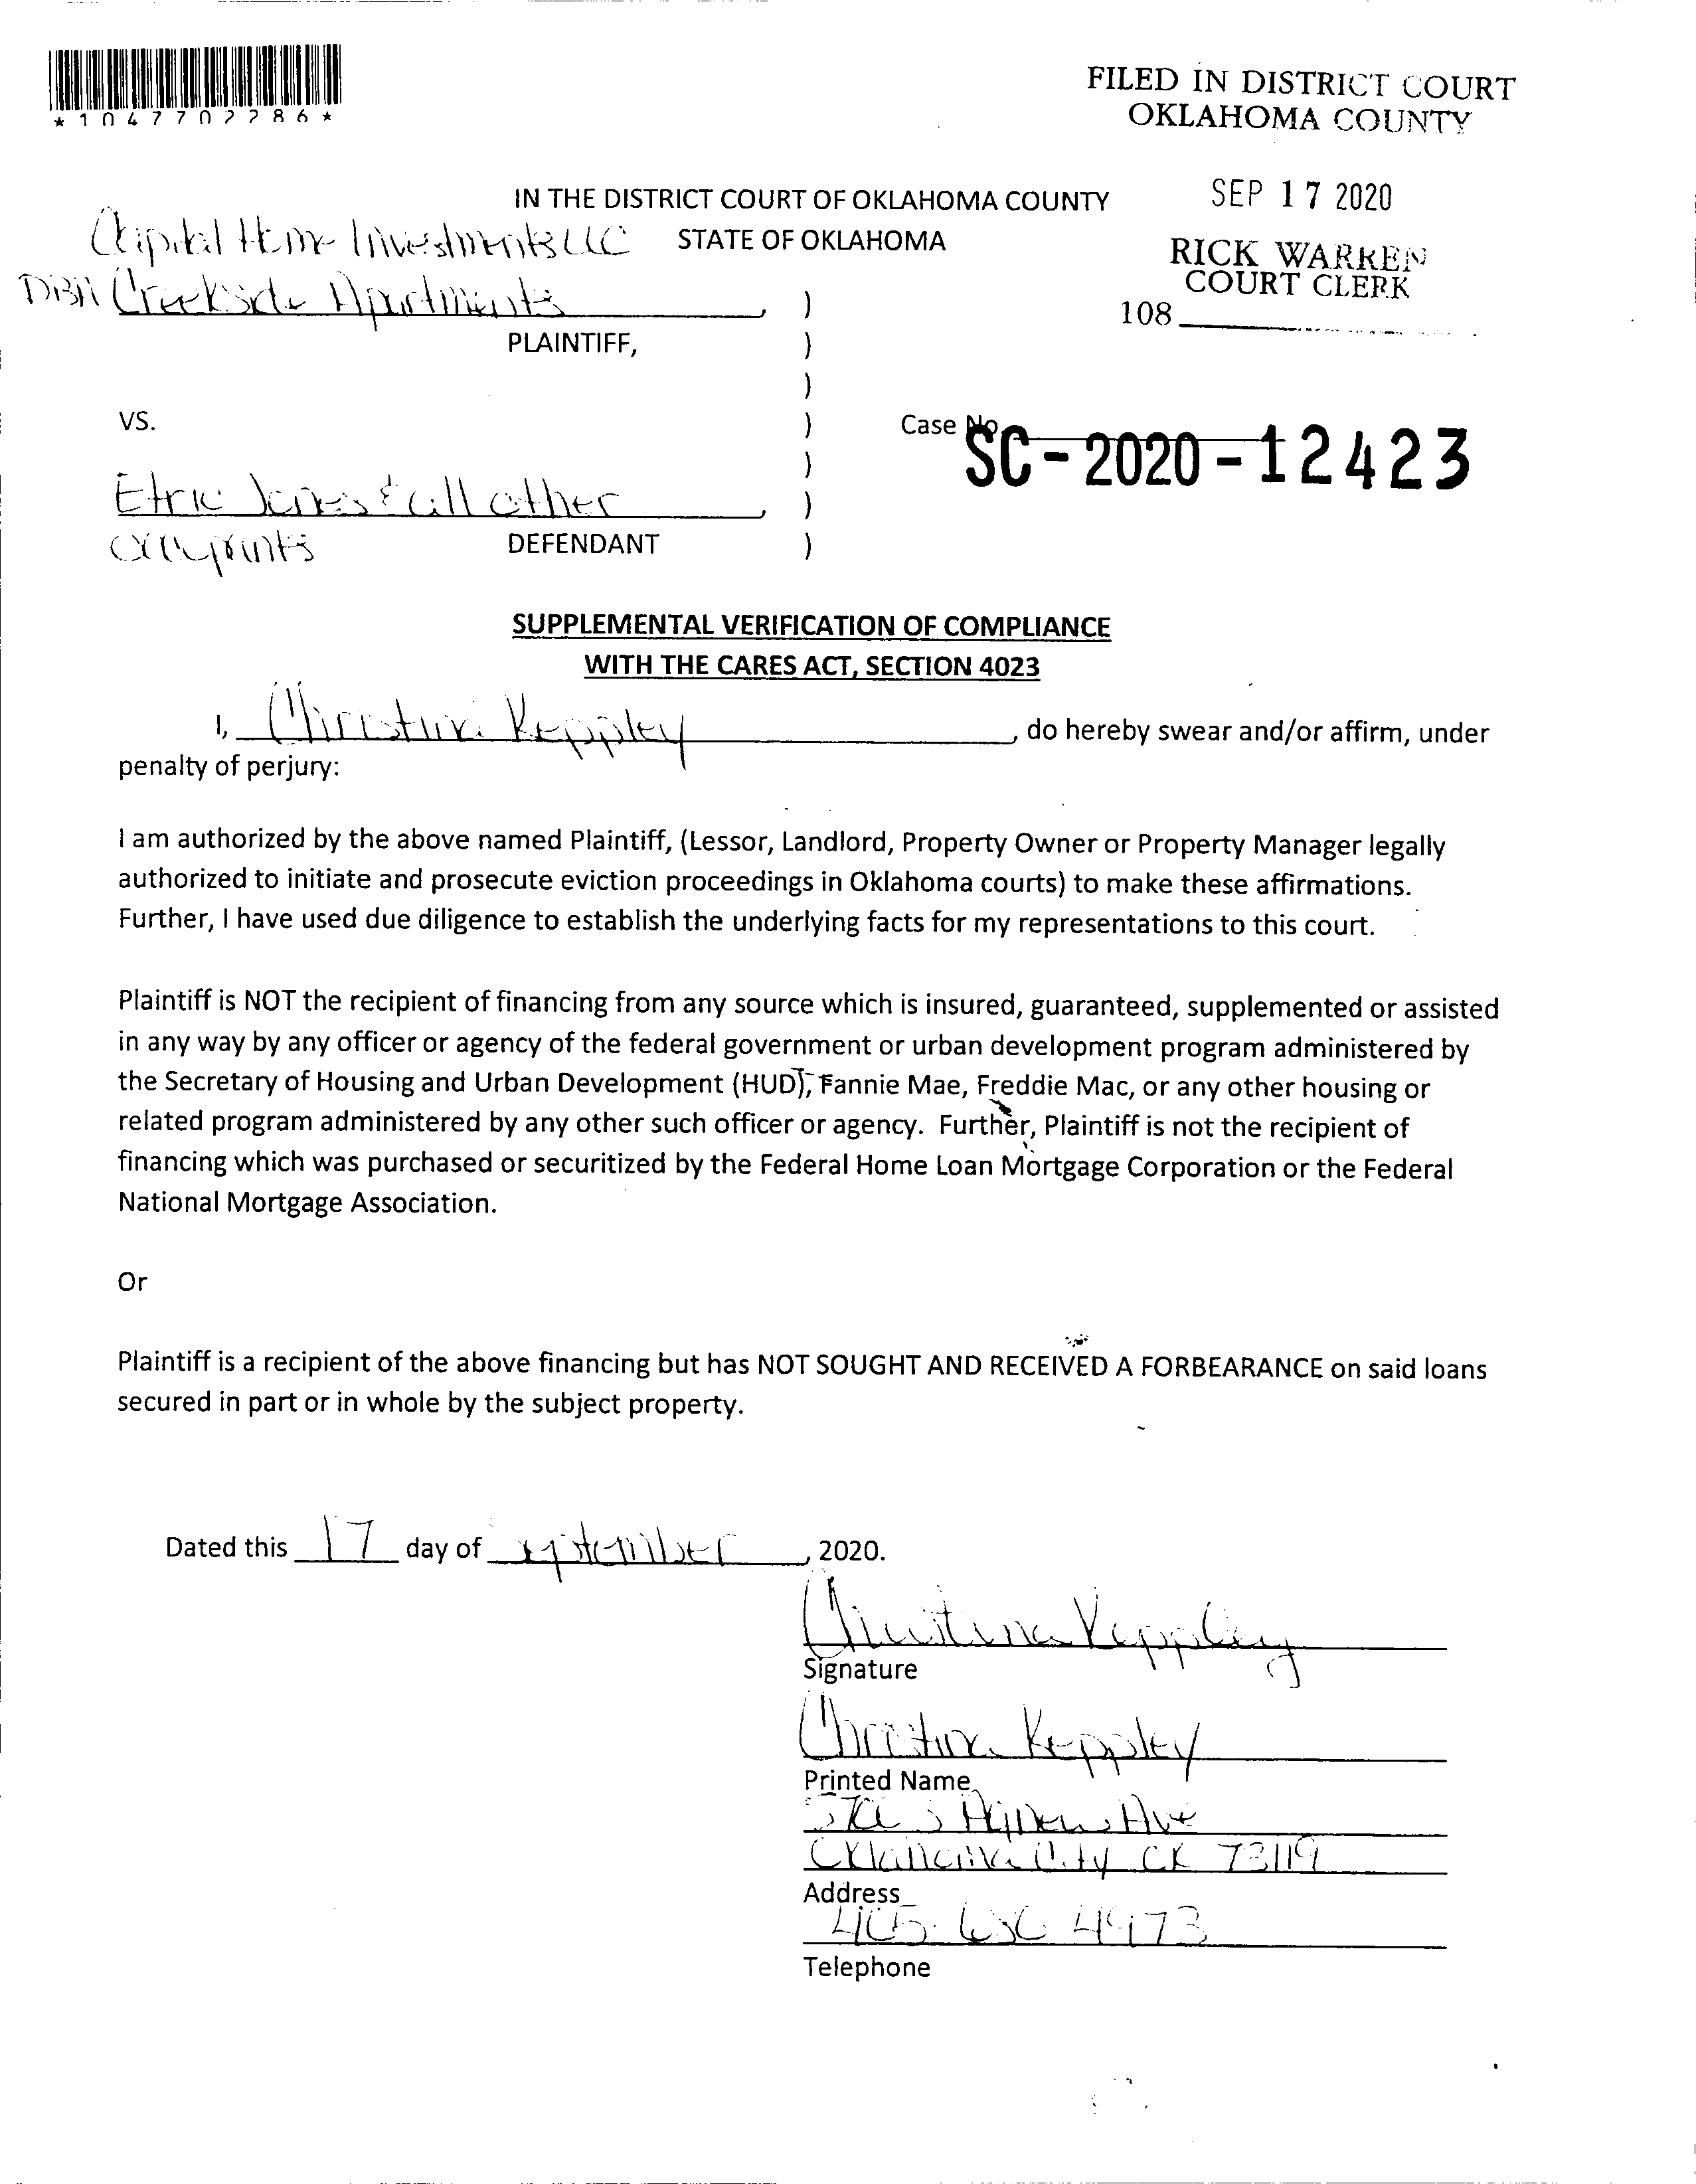 *1047702286*
FILED IN DISTRICT COURT
OKLAHOMA COUNTY
SEP 17 2020
RICK WARREN
COURT CLERK
108
IN THE DISTRICT COURT OF OKLAHOMA COUNTY
STATE OF OKLAHOMA
Capital Home Investments LLC
DBA Creekside Apartments
, )
PLAINTIFF, )
)
VS. )
Case No.
SC-2020-12423
)
Etric Jones & all other , )
occupants DEFENDANT )
SUPPLEMENTAL VERIFICATION OF COMPLIANCE
WITH THE CARES ACT, SECTION 4023
I, Christina Keppley, do hereby swear and/or affirm, under
penalty of perjury:
I am authorized by the above named Plaintiff, (Lessor, Landlord, Property Owner or Property Manager legally
authorized to initiate and prosecute eviction proceedings in Oklahoma courts) to make these affirmations.
Further, I have used due diligence to establish the underlying facts for my representations to this court.
Plaintiff is NOT the recipient of financing from any source which is insured, guaranteed, supplemented or assisted
in any way by any officer or agency of the federal government or urban development program administered by
the Secretary of Housing and Urban Development (HUD), Fannie Mae, Freddie Mac, or any other housing or
related program administered by any other such officer or agency. Further, Plaintiff is not the recipient of
financing which was purchased or securitized by the Federal Home Loan Mortgage Corporation or the Federal
National Mortgage Association.
Or
Plaintiff is a recipient of the above financing but has NOT SOUGHT AND RECEIVED A FORBEARANCE on said loans
secured in part or in whole by the subject property.
Dated this 17 day of September, 2020.
Christina Keppley
Signature
Christina Keppley
Printed Name
S Agnew Ave
Oklahoma City OK 73119
Address
405
Telephone